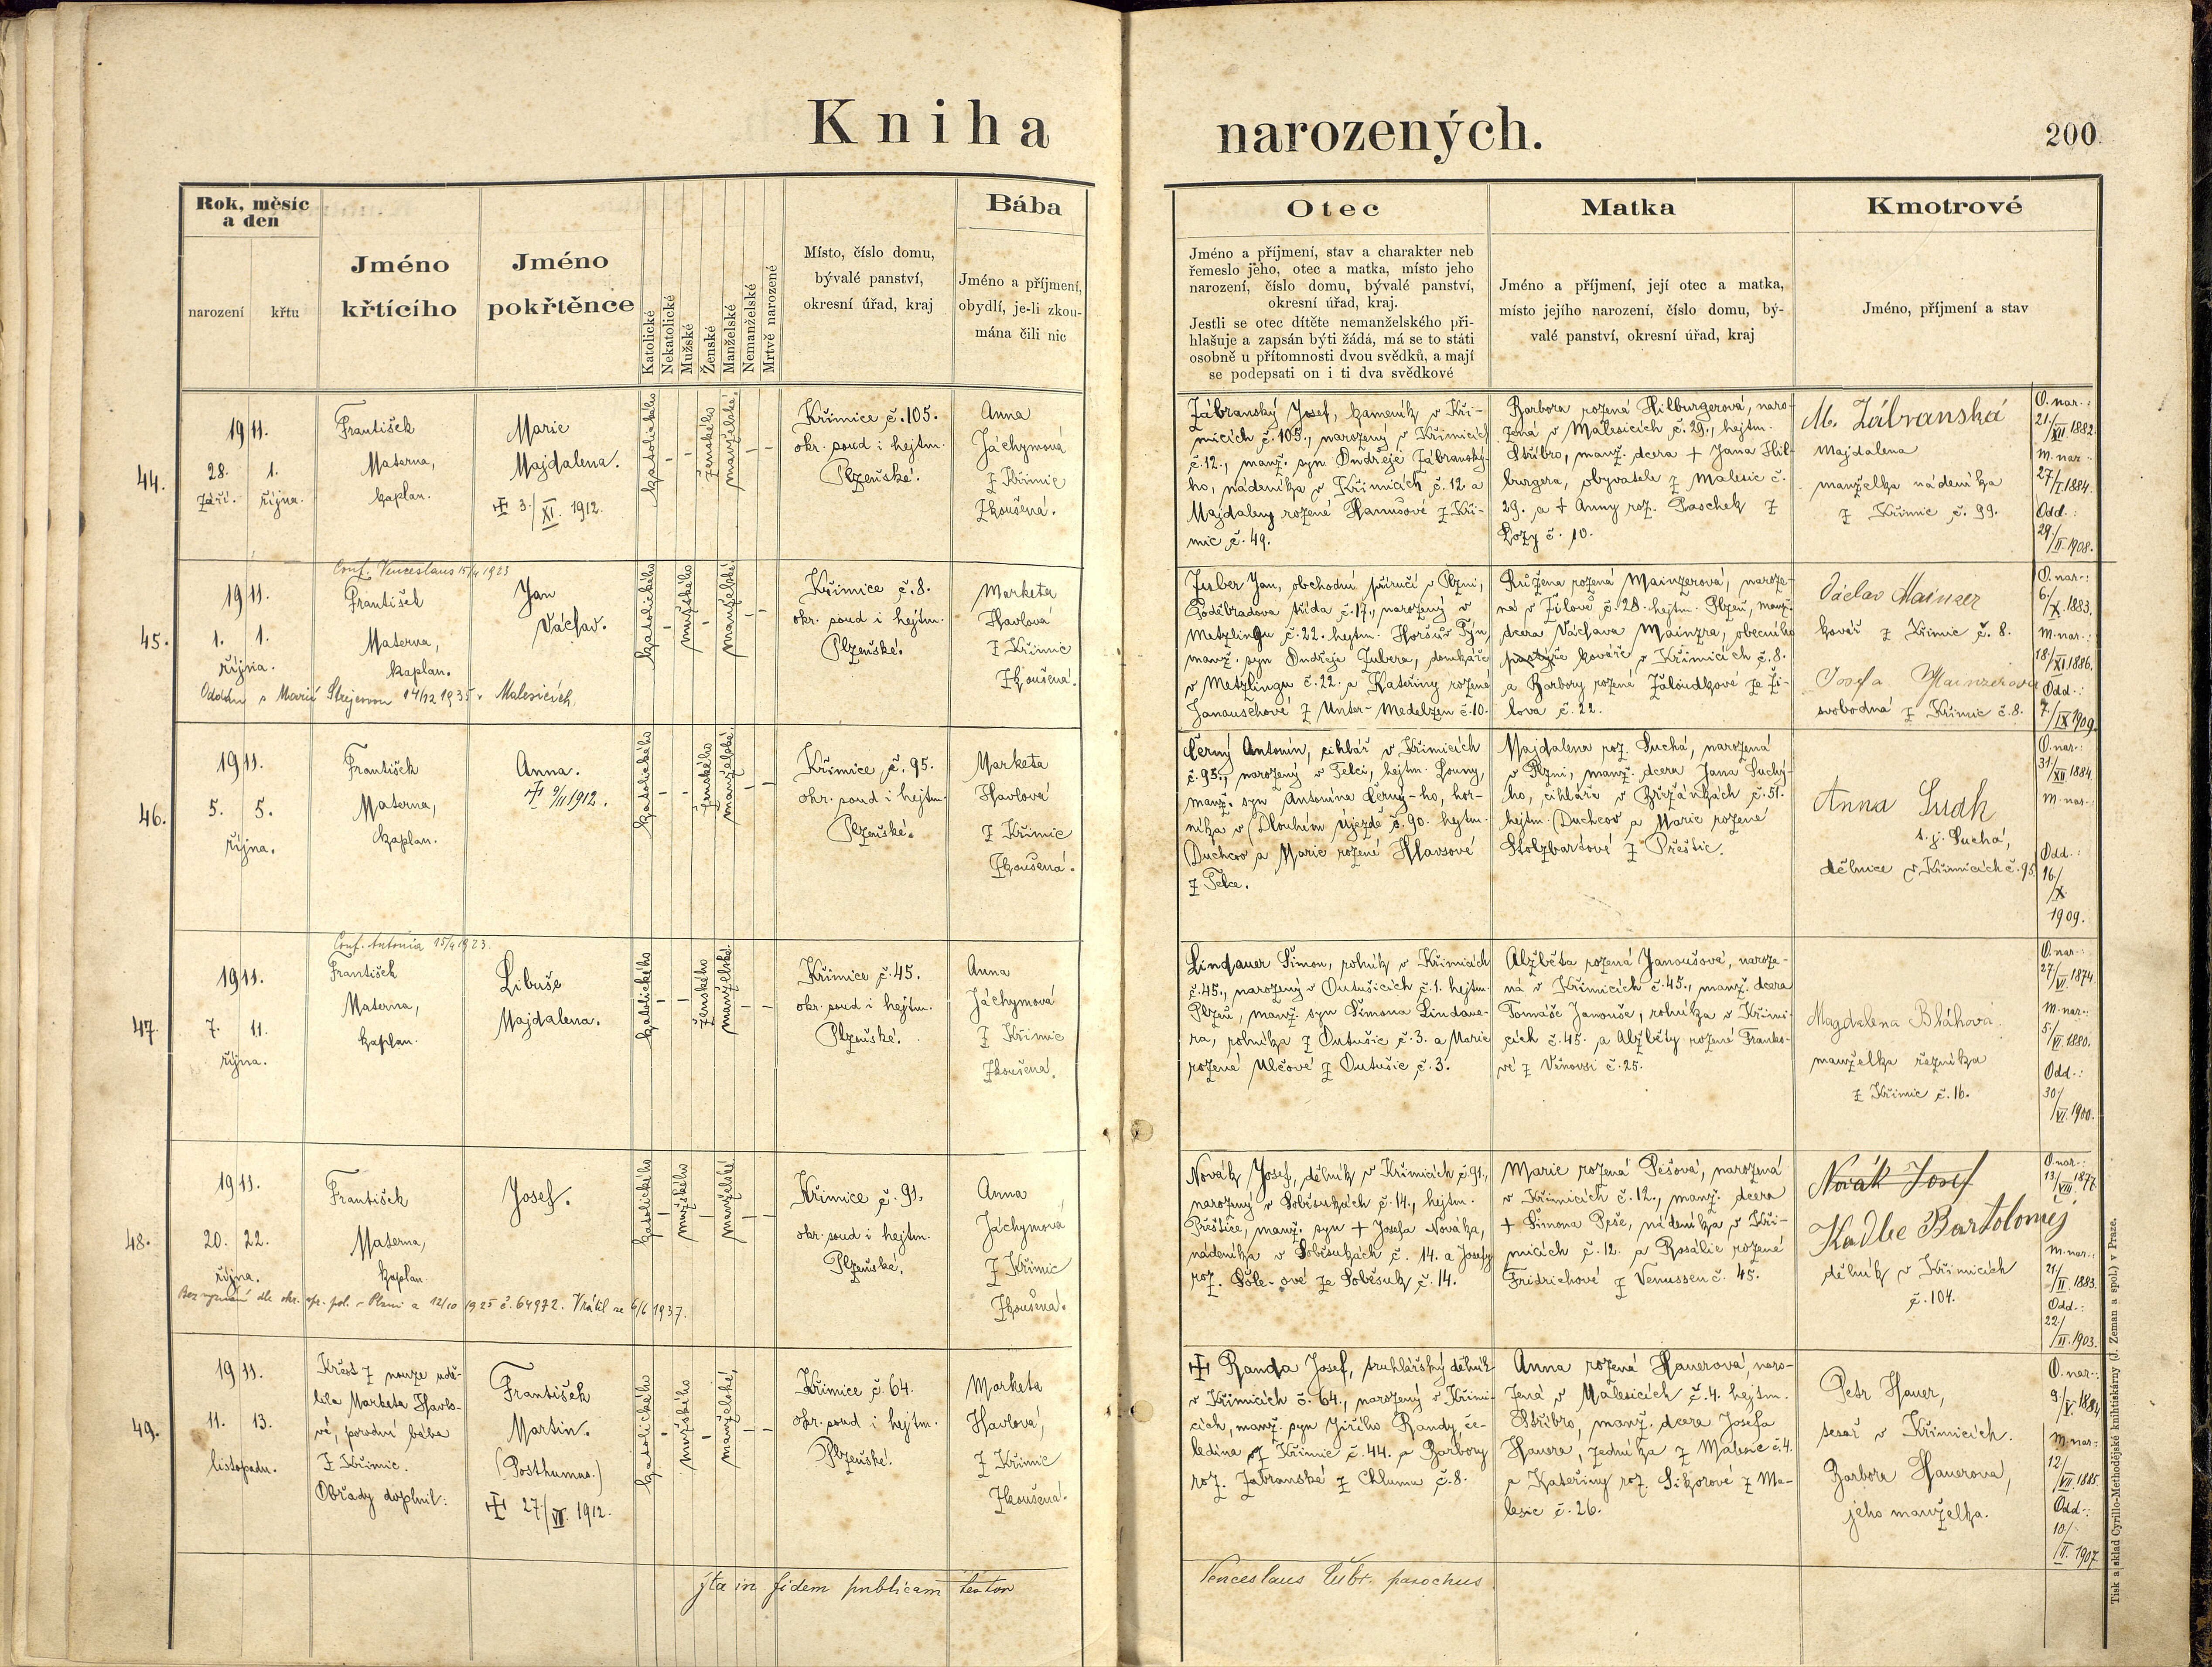 Kniha narozených.
200
Rok, měsíc
a den
narození
křtu
Jméno
křtícího
Jméno
pokřtěnce
Katolické
Nekatolické
Mužské
Ženské
Manželské
Nemanželské
Mrtvě narozené
Místo, číslo domu,
bývalé panství,
okresní úřad, kraj
Bába
Jméno a příjmení,
obydlí, je-li zkou-
mána čili nic
Otec
Jméno a příjmení, stav a charakter neb
řemeslo jeho, otec a matka, místo jeho
narození, číslo domu, bývalé panství,
okresní úřad, kraj.
Jestli se otec dítěte nemanželského při-
hlašuje a zapsán býti žádá, má se to státi
osobně u přítomnosti dvou svědků, a mají
se podepsati on i ti dva svědkové
Matka
Jméno a příjmení, její otec a matka,
místo jejího narození, číslo domu, bý-
valé panství, okresní úřad, kraj
Kmotrové
Jméno, příjmení a stav
44.
1911.
28. 1.
září. října.
František
Materna,
kaplan.
Marie
Majdalena.
3./XI. 1912.
katolického
ženského
manželské.
Křimice č. 105.
okr. soud i hejtm.
Plzeňské.
Anna
Jáchymová
z Křimic
Zkoušená.
Zábranský Josef, kameník v Kři-
micích č. 105., narozený v Křimicích
č. 12., manž. syn Ondřeje Zábranský-
ho, nádeníka v Křimicích č. 12. a
Majdaleny rozené Hanušové z Kři-
mic č. 49.
Barbora rozená Hilburgerová, naro-
zená v Malesicích č. 29., hejtm.
Stříbro, manž. dcera + Jana Hil-
burgera, obyvatele z Malesic č.
29. a + Anny roz. Paschek z
Kozy č. 10.
M. Zábranská
Majdalena
manželka nádeníka
z Křimic č. 99.
O. nar.:
21./XII. 1882.
M. nar.:
27/I. 1884.
Odd.:
29./II. 1908.
45.
Conf. Venceslaus 15/4 1923
1911.
1. 1.
října.
František
Materna,
kaplan.
Jan
Václav.
Oddán s Marií Strejcovou 14/12 1935 v Malesicích.
katolického
mužského
manželské
Křimice č. 8.
okr. soud i hejtm.
Plzeňské.
Marketa
Havlová
z Křimic
Zkoušená.
Zuber Jan, obchodní příručí v Plzni,
Poděbradova třída č. 17., narozený v
Metzlingu č. 22. hejtm. Horšův Týn,
manž. syn Ondřeje Zubera, domkáře
v Metzlingu č. 22. a Kateřiny rozené
Janauschové z Unter-Medelzen č. 10.
Růžena rozená Mainzerová, naroze-
ná v Žilově č. 28. hejtm. Plzeň, manž.
dcera Václava Mainzra, obecního
pastýře kováře v Křimicích č. 8.
a Barbory rozené Žaloudkové ze Ži-
lova č. 22.
Václav Mainzer
kovář z Křimic č. 8.
Josefa Mainzerová
svobodná z Křimic č. 8.
O. nar.:
6./X. 1883.
M. nar.:
18./XI. 1886.
Odd.:
7./IX. 1909.
46.
1911.
5. 5.
října.
František
Materna,
kaplan.
Anna.
9/II 1912.
katolického
ženského
manželské.
Křimice č. 95.
okr. soud i hejtm.
Plzeňské.
Marketa
Havlová
z Křimic
Zkoušená.
Černý Antonín, cihlář v Křimicích
č. 95., narozený v Telci, hejtm. Louny,
manž. syn Antonína Černý-ho, hor-
níka v Dlouhém Újezdě č. 90. hejtm.
Duchcov a Marie rozené Hlavsové
z Telce.
Majdalena roz. Suchá, narozená
v Plzni, manž. dcera Jana Suchý-
ho, cihláře v Břežánkách č. 51.
hejtm. Duchcov a Marie rozené
Stolzbartové z Přeštic.
Anna Sudk
t. j. Suchá,
dělnice v Křimicích č. 95
O. nar.:
31/XII. 1884.
M. nar.:
Odd.:
16./X.
1909.
47.
Conf. Antonia 15/4 1923.
1911.
7. 11.
října.
František
Materna,
kaplan.
Libuše
Majdalena.
katolického
ženského
manželské.
Křimice č. 45.
okr. soud i hejtm.
Plzeňské.
Anna
Jáchymová
z Křimic
Zkoušená.
Lindauer Šimon, rolník v Křimicích
č. 45., narozený v Outušicích č. 1. hejtm.
Plzeň, manž. syn Šimona Lindaue-
ra, rolníka z Outušic č. 3. a Marie
rozené Ulčové z Outušic č. 3.
Alžběta rozená Janoušová, naroze-
ná v Křimicích č. 45., manž. dcera
Tomáše Janouše, rolníka v Křimi-
cích č. 45. a Alžběty rozené Franko-
vé z Vinovsi č. 25.
Magdalena Bláhová
manželka řezníka
z Křimic č. 16.
O. nar.:
27./VI. 1874.
M. nar.:
5./VI. 1880.
Odd.:
30/VI. 1900.
48.
1911.
20. 22.
října.
František
Materna,
kaplan.
Josef.
Bez vyznání dle okr. spr. pol. v Plzni a 12/10 1925 č. 64972. Vrátil se 6/6 1937.
katolického
mužského
manželské
Křimice č. 91.
okr. soud i hejtm.
Plzeňské.
Anna
Jáchymová
z Křimic
Zkoušená.
Novák Josef, dělník v Křimicích č. 91.,
narozený v Soběsukách č. 14., hejtm.
Přeštice, manž. syn + Josefa Nováka,
nádeníka v Soběsukách č. 14. a Josefy
roz. Šůle-ové ze Soběsuk č. 14.
Marie rozená Pešová, narozená
v Křimicích č. 12., manž. dcera
+ Šimona Peše, nádeníka v Kři-
micích č. 12. a Rosalie rozené
Fridrichové z Venussen č. 45.
Novák Josef
Kadlec Bartoloměj
dělník v Křimicích
č. 104.
O. nar.:
13/VIII. 1877.
M. nar.:
21/II. 1883.
Odd.:
22./II. 1903.
49.
1911.
11. 13.
listopadu.
Křest z nouze udě-
lila Marketa Havlo-
vá, porodní bába
z Křimic.
Obřady doplnil:
František
Martin.
(Posthumus.)
27/VI. 1912.
katolického
mužského
manželské,
Křimice č. 64.
okr. soud i hejtm.
Plzeňské.
Marketa
Havlová,
z Křimic
Zkoušená.
Randa Josef, truhlářský dělník
v Křimicích č. 64., narozený v Křimi-
cích, manž. syn Jiřího Randy, če-
ledína z Křimic č. 44. a Barbory
roz. Zábranské z Chlumu č. 8.
Anna rozená Hauerová, naro-
zená v Malesicích č. 4. hejtm.
Stříbro, manž. dcera Josefa
Hauera, zedníka z Malesic č. 4.
a Kateřiny roz. Sikorové z Ma-
lesic č. 26.
Petr Hauer,
tesař v Křimicích.
Barbora Hauerova,
jeho manželka.
O. nar.:
9/V. 1884
M. nar.:
12/VII. 1885.
Odd.:
10/II. 1907
Ita in fidem publicam testor
Venceslaus parochus
Tisk a sklad Cyrillo-Methodějské knihtiskárny (J. Zeman a spol.) v Praze.